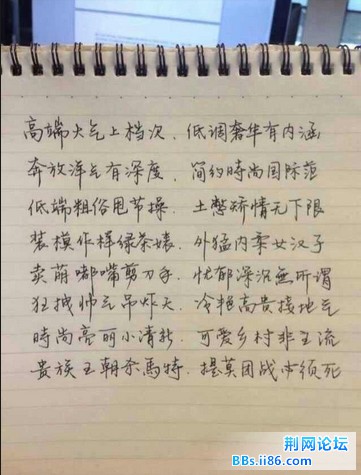 高端大气上档次、低调奢华有内涵
奔放洋气有深度、简约時尚国际范
低端粗俗甩节操、土憋矫情无下限
装模作样绿茶婊、外猛内柔女汉子
卖萌嘟嘴剪刀手、忧郁深沉無所谓
狂拽帅气吊炸天、冷艳高贵接地气
時尚亮丽小清新、可爱乡村非主流
贵族王朝杀馬特、提莫团战必须死
荆网论坛
BBs.ii86.com